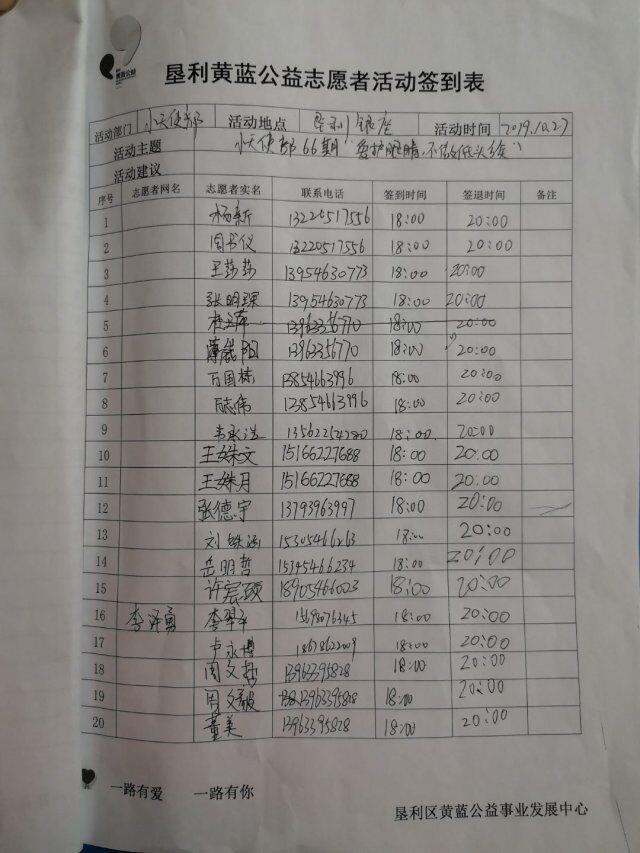 黄蓝公益
垦利黄蓝公益志愿者活动签到表
活动部门 小天使部 活动地点 垦利银座 活动时间 2019.10.27
活动主题 小天使部66期"爱护眼睛,不做低头族"
活动建议
序号 志愿者网名 志愿者实名 联系电话 签到时间 签退时间 备注
1 杨新 13220517556 18:00 20:00
2 周书仪 13220517556 18:00 20:00
3 王莎莎 13954630773 18:00 20:00
4 张明琛 13954630773 18:00 20:00
5 13963356770 18:00 20:00
6 13963356770 18:00 20:00
7 万国栋 13854663996 18:00 20:00
8 13854663996 18:00 20:00
9 18:00 20:00
10 王姝文 15166227688 18:00 20:00
11 王姝月 15166227688 18:00 20:00
12 张德宇 13793963997 18:00 20:00
13 18:00 20:00
14 岳明哲 15345466234 18:00 20:00
15 许宸硕 18905466003 18:00 20:00
16 李泽勇 15698076345 18:00 20:00
17 卢永博 18678622009 18:00 20:00
18 周文哲 13963395828 18:00 20:00
19 周文毅 13963395828 18:00 20:00
20 董美 13963395828 18:00 20:00
一路有爱 一路有你
垦利区黄蓝公益事业发展中心